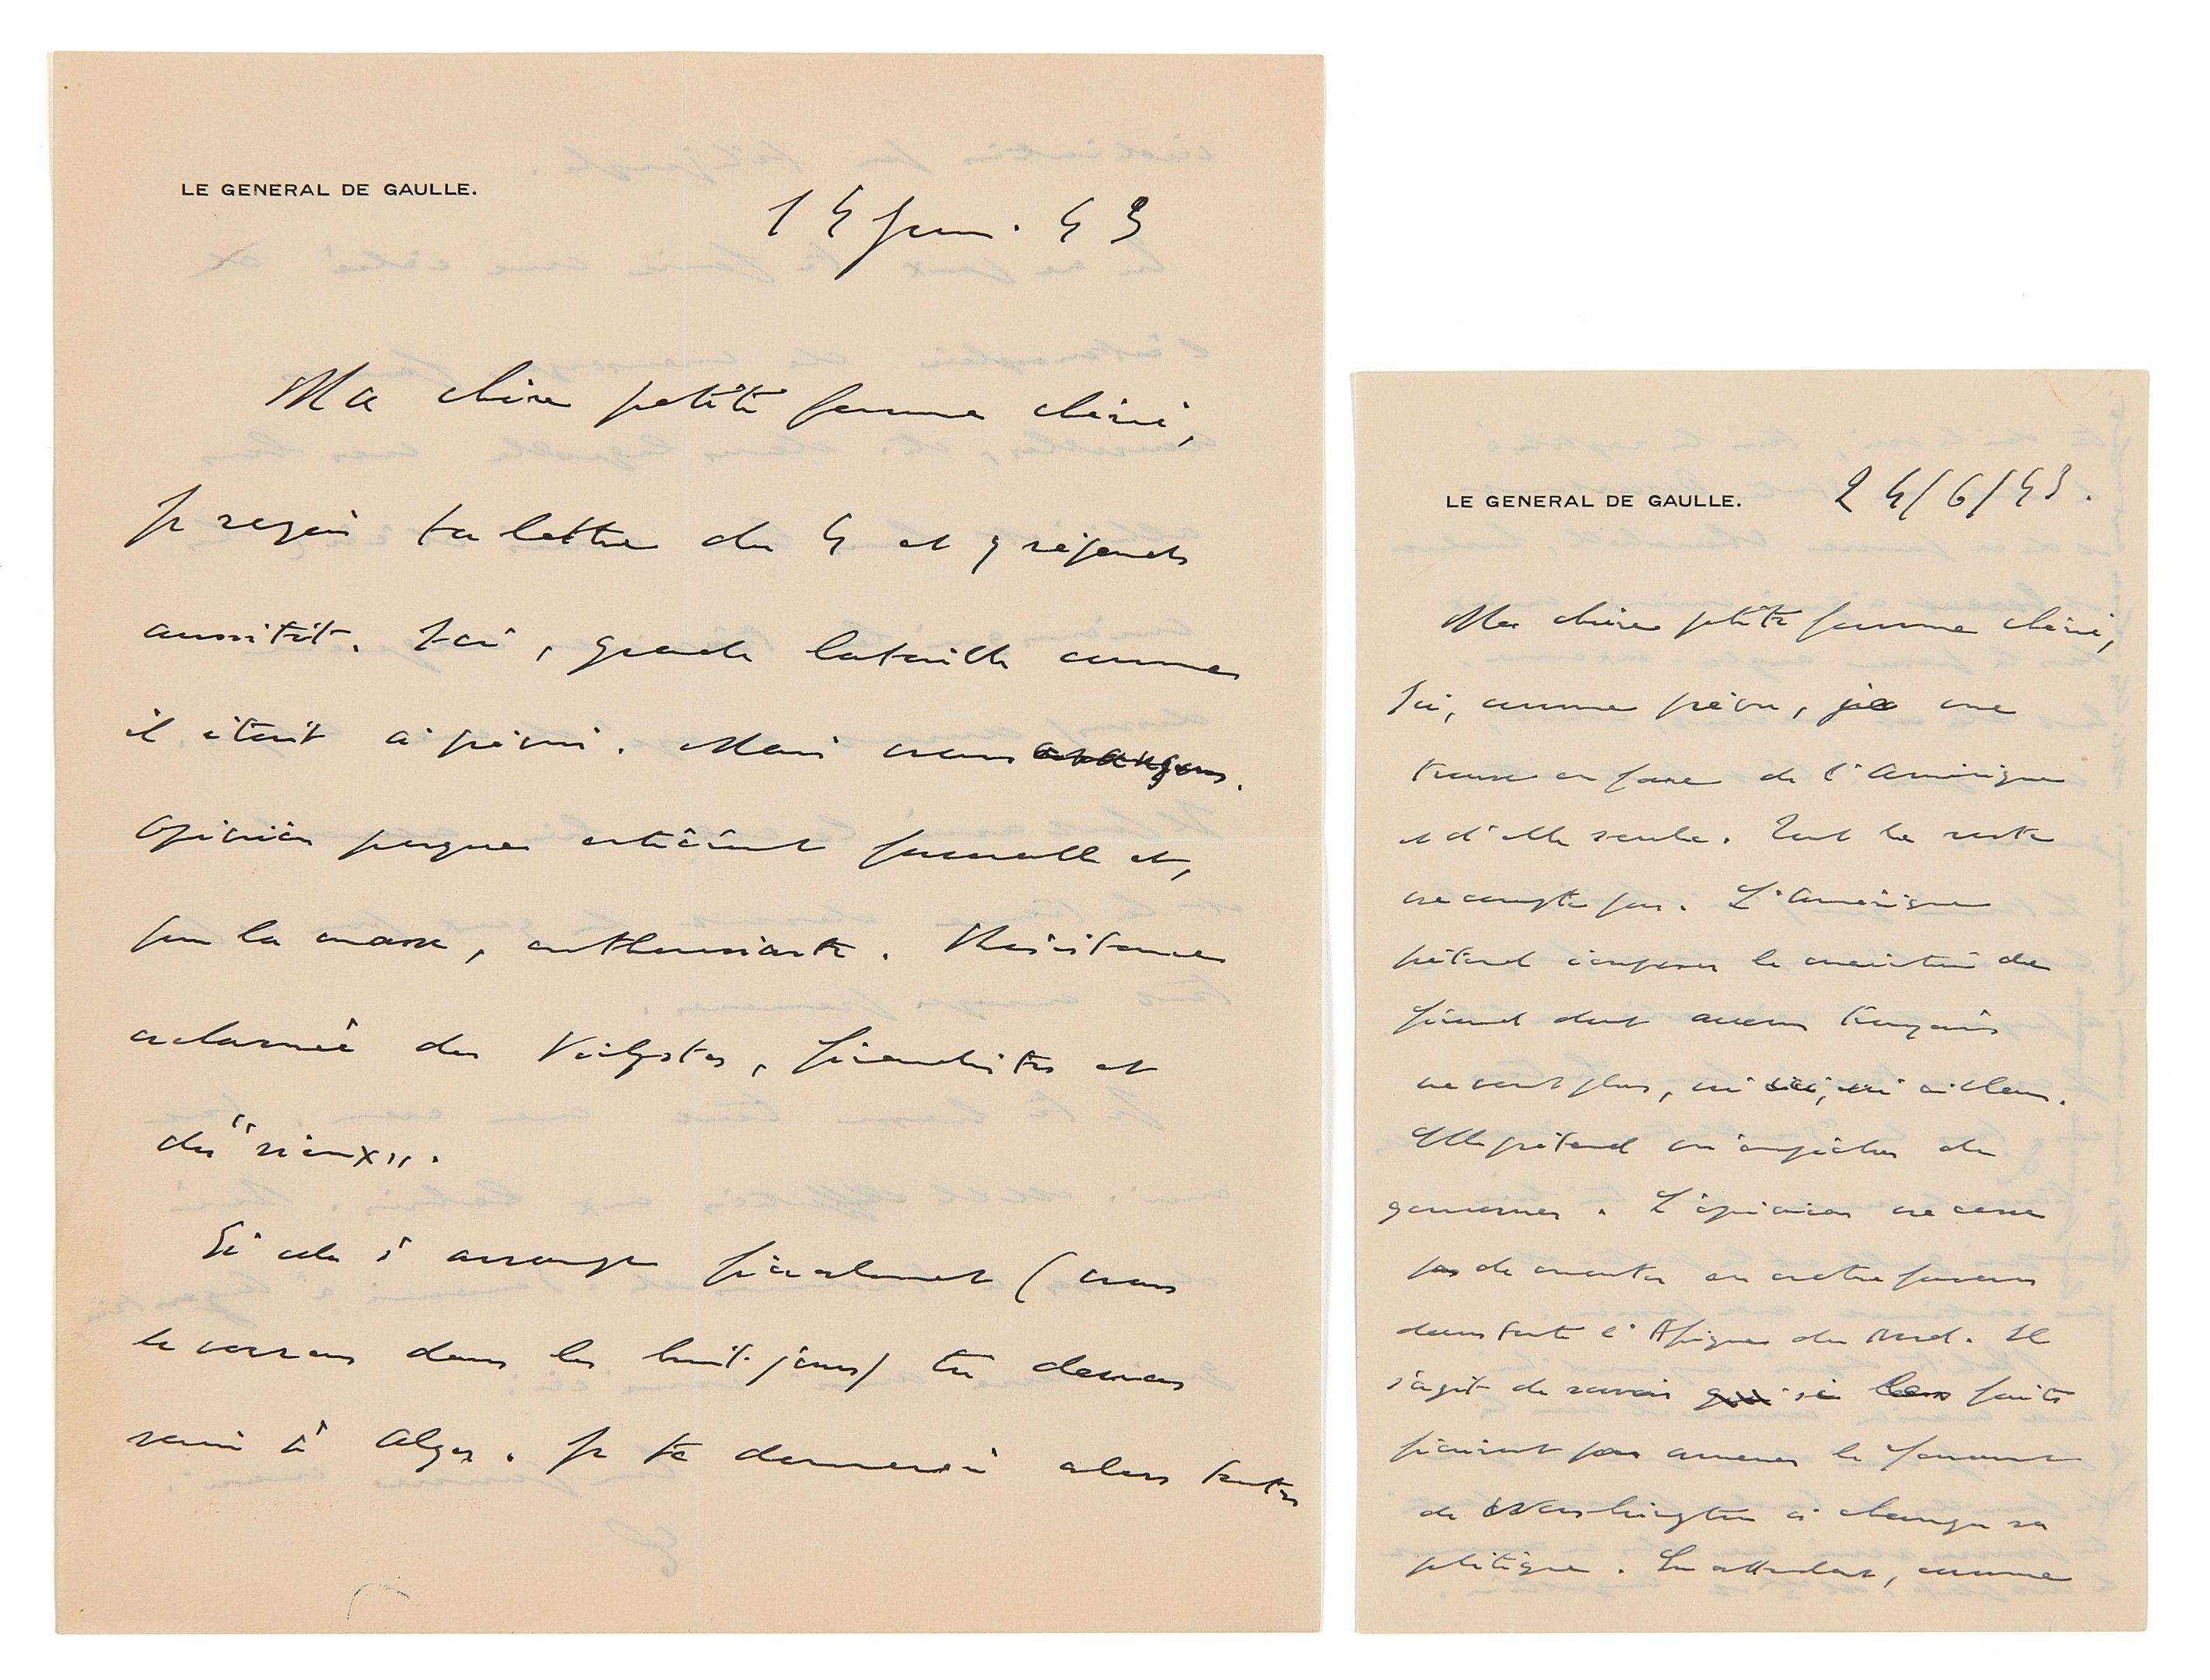 LE GENERAL DE GAULLE.
14 juin. 43
Ma chère petite femme chérie,
Je reçois ta lettre du 4 et y réponds
aussitôt. Ici, grande bataille comme
il était à prévoir. Mais nous avançons.
Opinion presque entièrement favorable et,
pour la masse, enthousiaste. Résistance
acharnée des Vichystes, giraudistes et
des "vieux".
Si cela s'arrange finalement (nous
le verrons dans les huit jours) tu devras
venir à Alger. Je te donnerai alors toutes
LE GENERAL DE GAULLE.
24/6/43.
Ma chère petite femme chérie,
Ici, comme prévu, je me
trouve en face de l'Amérique
et d'elle seule. Tout le reste
ne compte pas. L'Amérique
prétend imposer le maintien de
Giraud dont aucun Français
ne veut plus, ni ici, ni ailleurs.
Elle prétend m'empêcher de
gouverner. L'opinion ne cesse
pas de monter en notre faveur
dans toute l'Afrique du Nord. Il
s'agit de savoir si les faits
finiront par amener le
de Washington à changer sa
politique. En attendant, comme